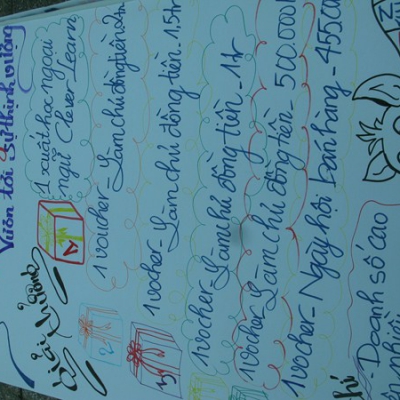 Vườn tài Sự thịnh vượng
Giải thưởng
1 xuất học ngoại
ngữ Clever Learn
1 voucher - Làm chủ đồng tiền
1 vocher - Làm chủ đồng tiền. 1,5tr
1 vocher Làm chủ đồng tiền. 1tr
1 vocher Làm chủ đồng tiền - 500.000
1 vocher - Ngày hội bán hàng - 455.00
- Doanh số cao